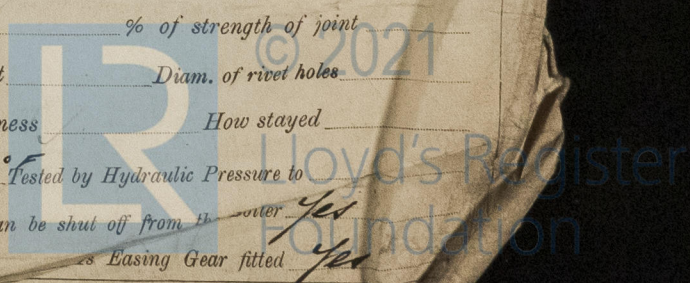 % of strength of joint
Diam. of rivet holes
ness How stayed
Tested by Hydraulic Pressure to
n be shut off from the boiler Yes
s Easing Gear fitted Yes
© 2021
LR
Lloyd's Register
Foundation